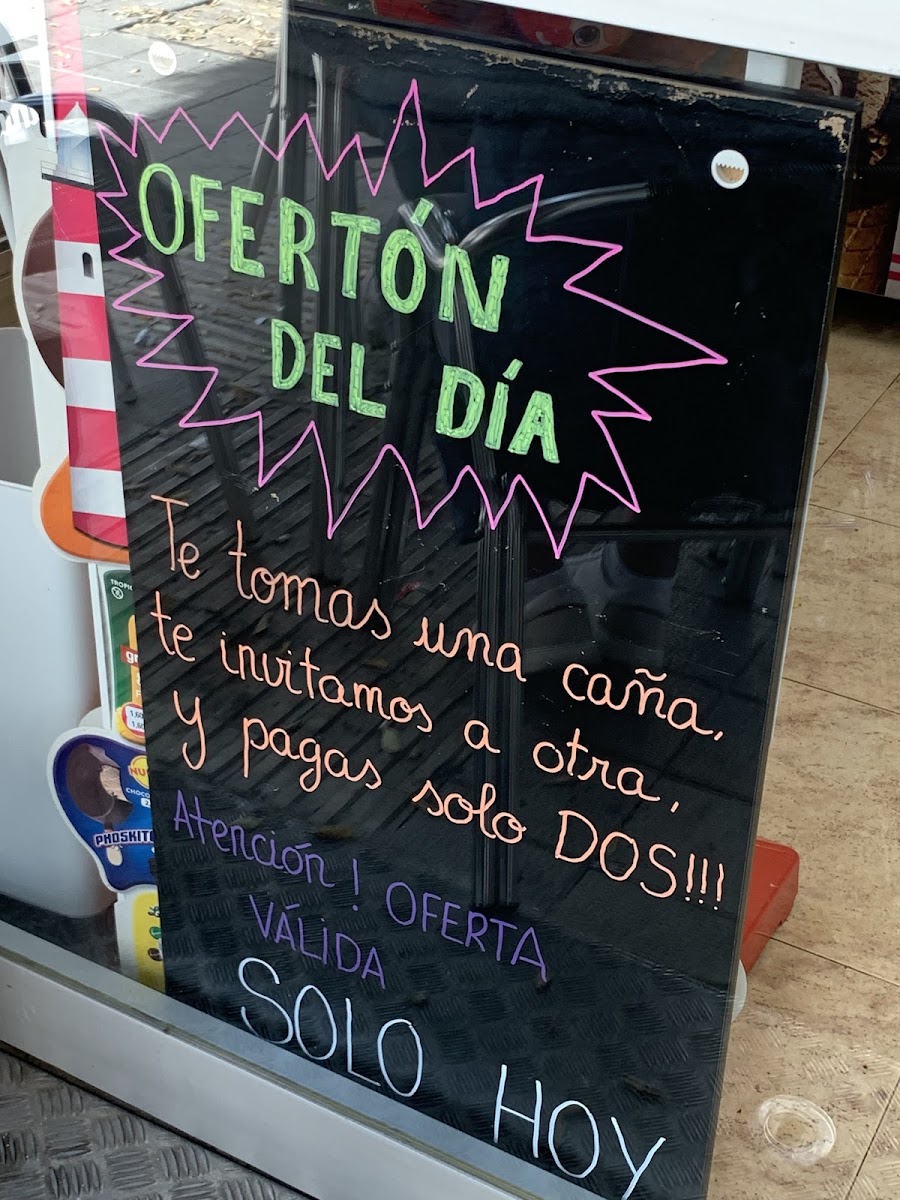 OFERTÓN
DEL DÍA
Te tomas una caña,
te invitamos a otra,
y pagas solo DOS!!!
Atención! OFERTA
VÁLIDA
SOLO HOY
PHOSKITO